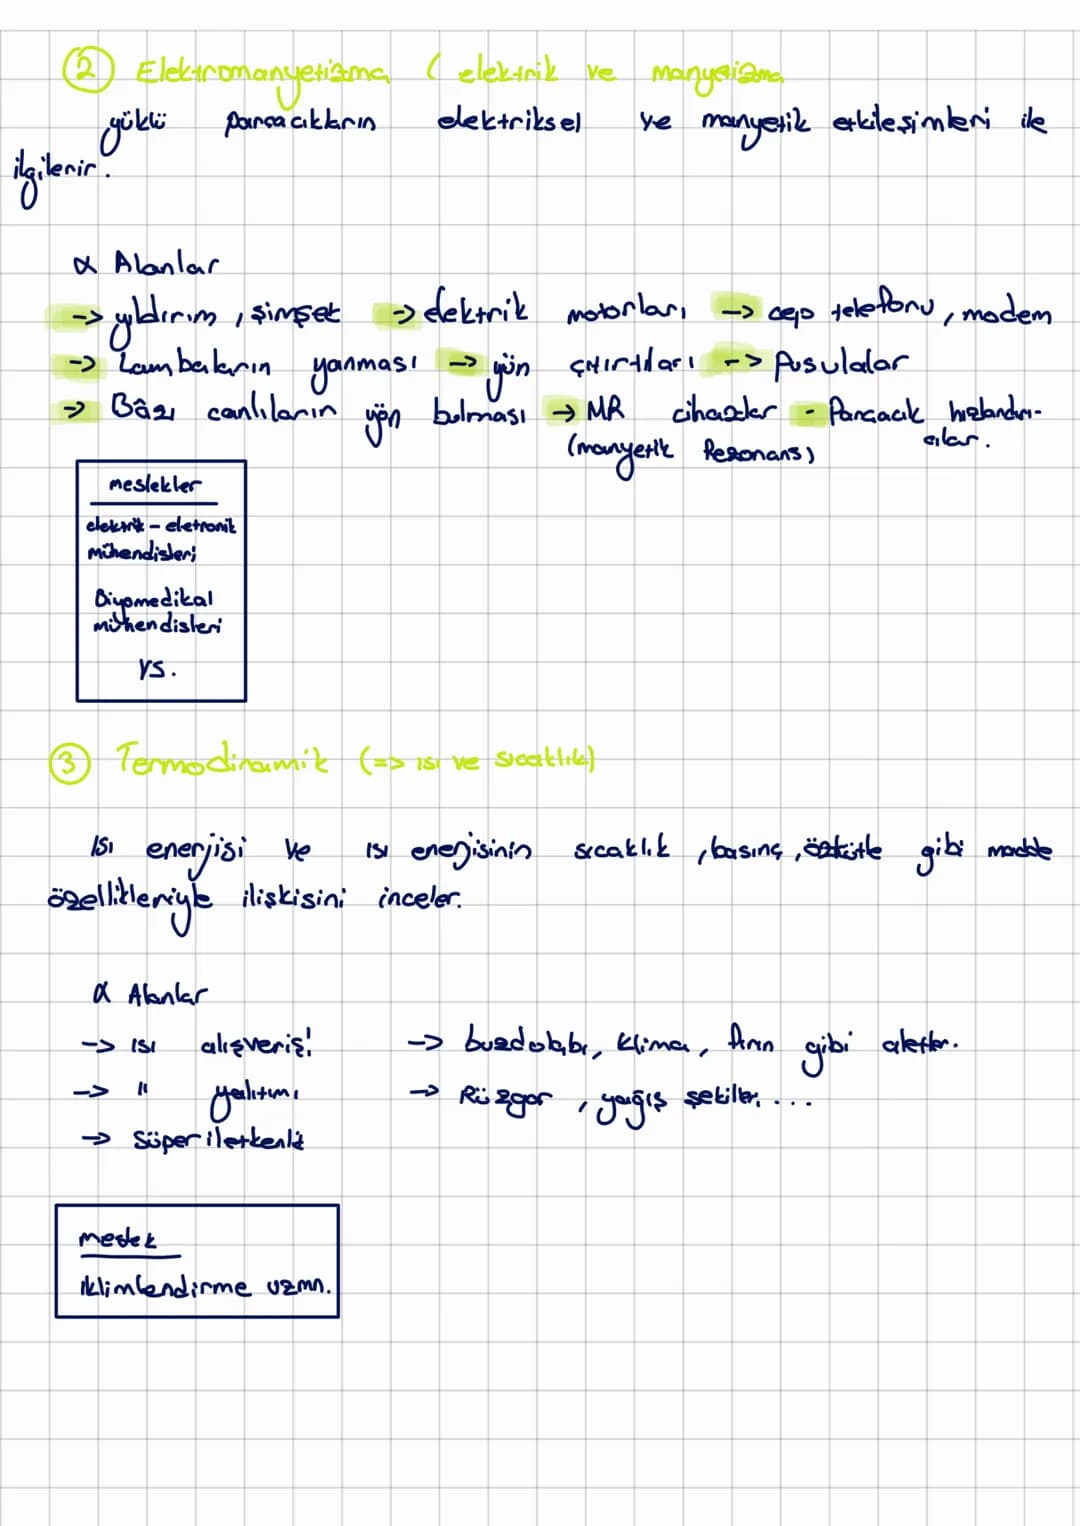 ② Elektromanyetizma ( elektrik ve manyetizma
yüklü parçacıkların elektriksel ve manyetik etkileşimleri ile
ilgilenir.
α Alanlar
-> yıldırım, şimşek -> elektrik motorları -> cep telefonu, modem
-> Lambaların yanması -> yün çıtırtıları -> Pusulalar
-> Bâzı canlıların yön bulması -> MR cihazlar - Parçacık hızlandırı-
(manyetik Rezonans) cılar.
meslekler
elektrik - eletronik
mühendisleri
Biyomedikal
mühendisleri
vs.
③ Termodinamik (=> ısı ve sıcaklık)
Isı enerjisi ve ısı enerjisinin sıcaklık, basınç, özkütle gibi madde
özellikleriyle ilişkisini inceler.
α Alanlar
-> ısı alışverişi -> buzdolabı, klima, fırın gibi aletler.
-> " yalıtımı -> Rüzgar, yağış şekiller, ...
-> Süper iletkenlik
meslek
iklimlendirme uzmn.